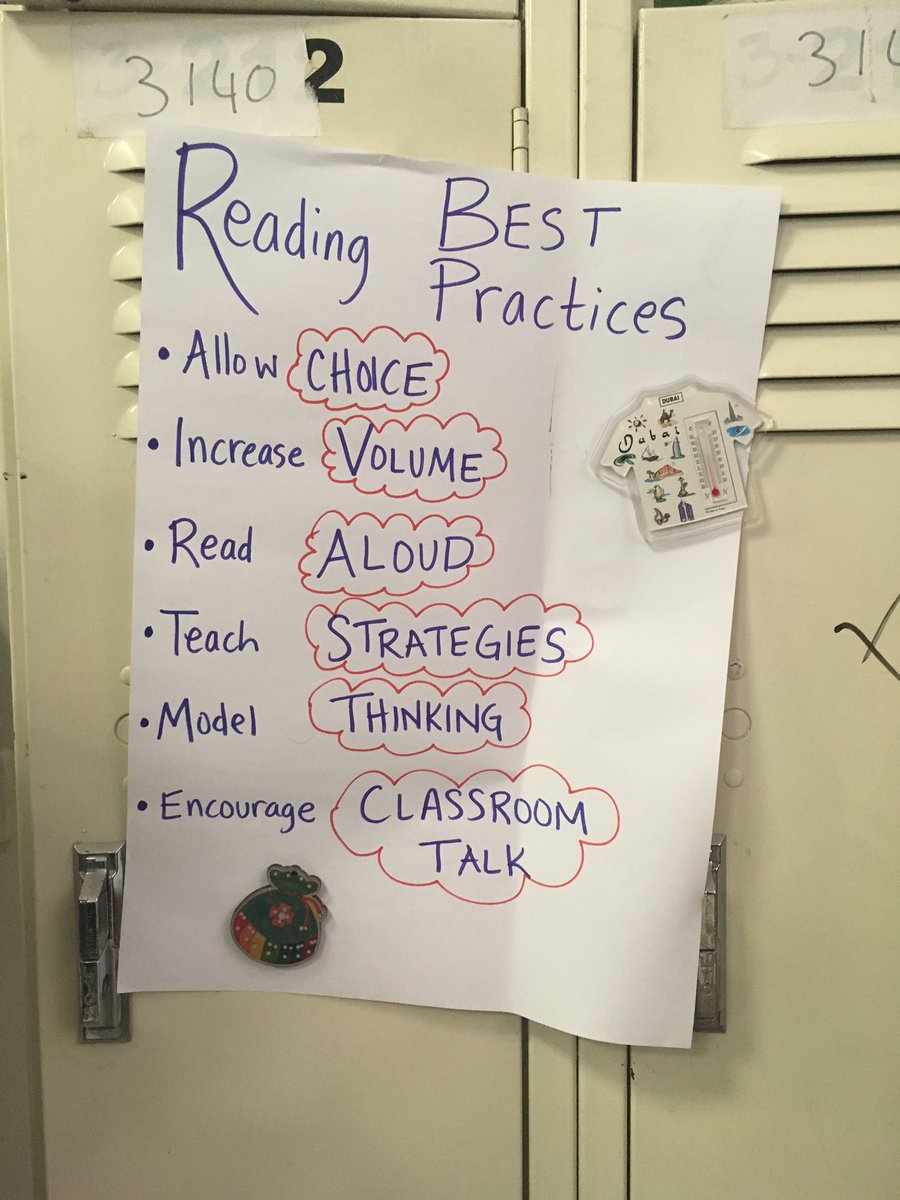 3140
2
314
Reading BEST
Practices
• Allow CHOICE
• Increase VOLUME
• Read ALOUD
• Teach STRATEGIES
• Model THINKING
• Encourage CLASSROOM
TALK
DUBAI
Dubai